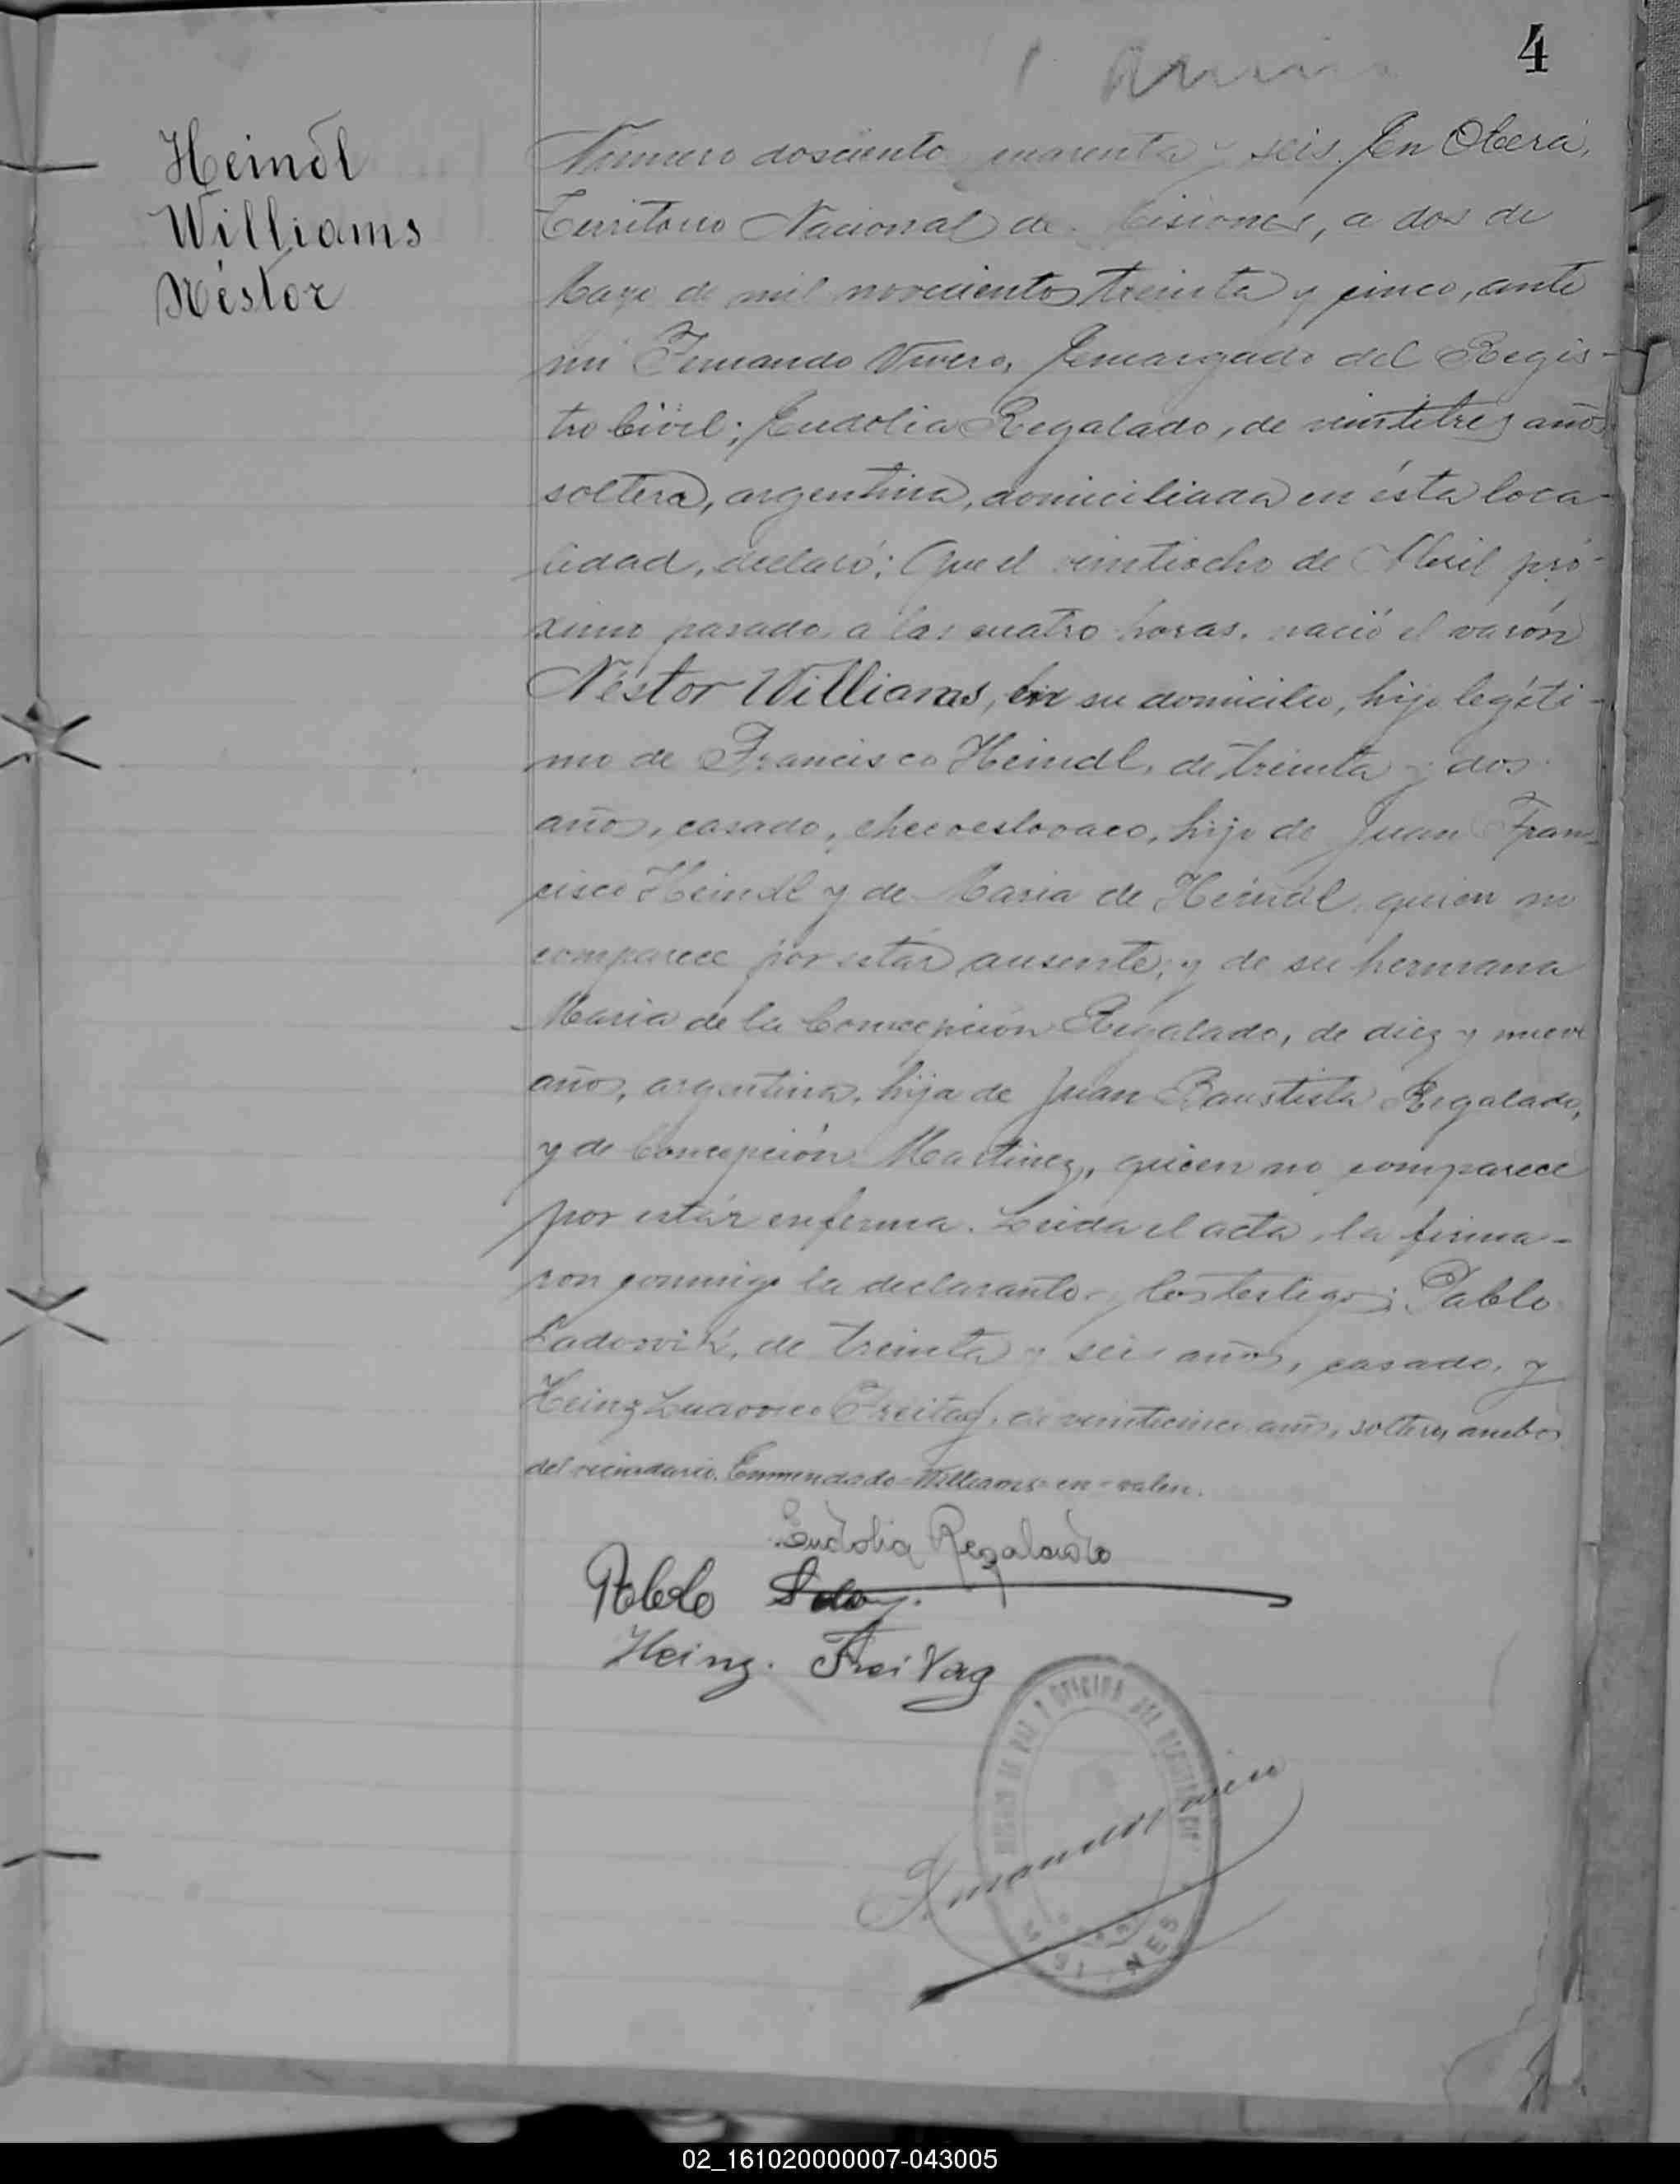 4
Heindl
Williams
Néstor
Número dosciento cuarenta y seis. En Oberá,
Territorio Nacional de Misiones, a dos de
Mayo de mil novecientos treinta y cinco, ante
mi Fernando Vivero, Encargado del Regis-
tro Civil; Eudolia Regalado, de veintitres años
soltera, argentina, domiciliada en ésta loca-
lidad, declaró: Que el veintiocho de Abril pró-
ximo pasado, a las cuatro horas, nació el varón
Néstor Williams, en su domicilio, hijo legíti-
mo de Francisco Heindl, de treinta y dos
años, casado, checoeslovaco, hijo de Juan Fran-
cisco Heindl y de Maria de Heindl, quien no
comparece por estar ausente; y de su hermana
Maria de la Concepción Regalado, de diez y nueve
años, argentina, hija de Juan Bautista Regalado,
y de Concepción Martinez, quien no comparece
por estár enferma. Leida el acta, la firma-
ron conmigo la declarante y los testigos: Pablo
de treinta y seis años, casado, y
Heinz Ludovico Freitag, de veinticinco años, soltero, ambos
del vecindario. Enmendado-Williams-en-valen.
Eudolia Regalado
Pablo
Heinz. Freitag
MISIONES
02_161020000007-043005